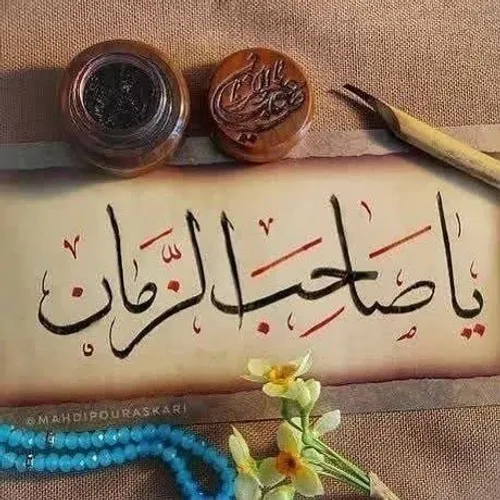 یا صاحب الزمان
@MAHDIPOURASKARI